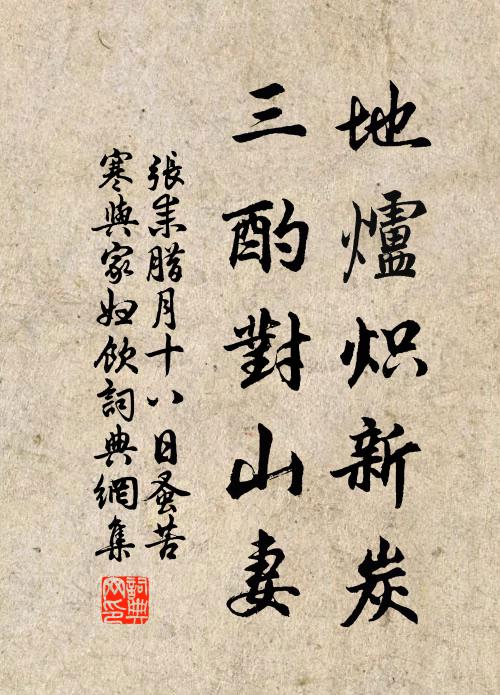 地爐炽新炭
三酌對山妻
張耒腊月十八日蚤苦
寒與家婦飲詞典網集
詞典
网印